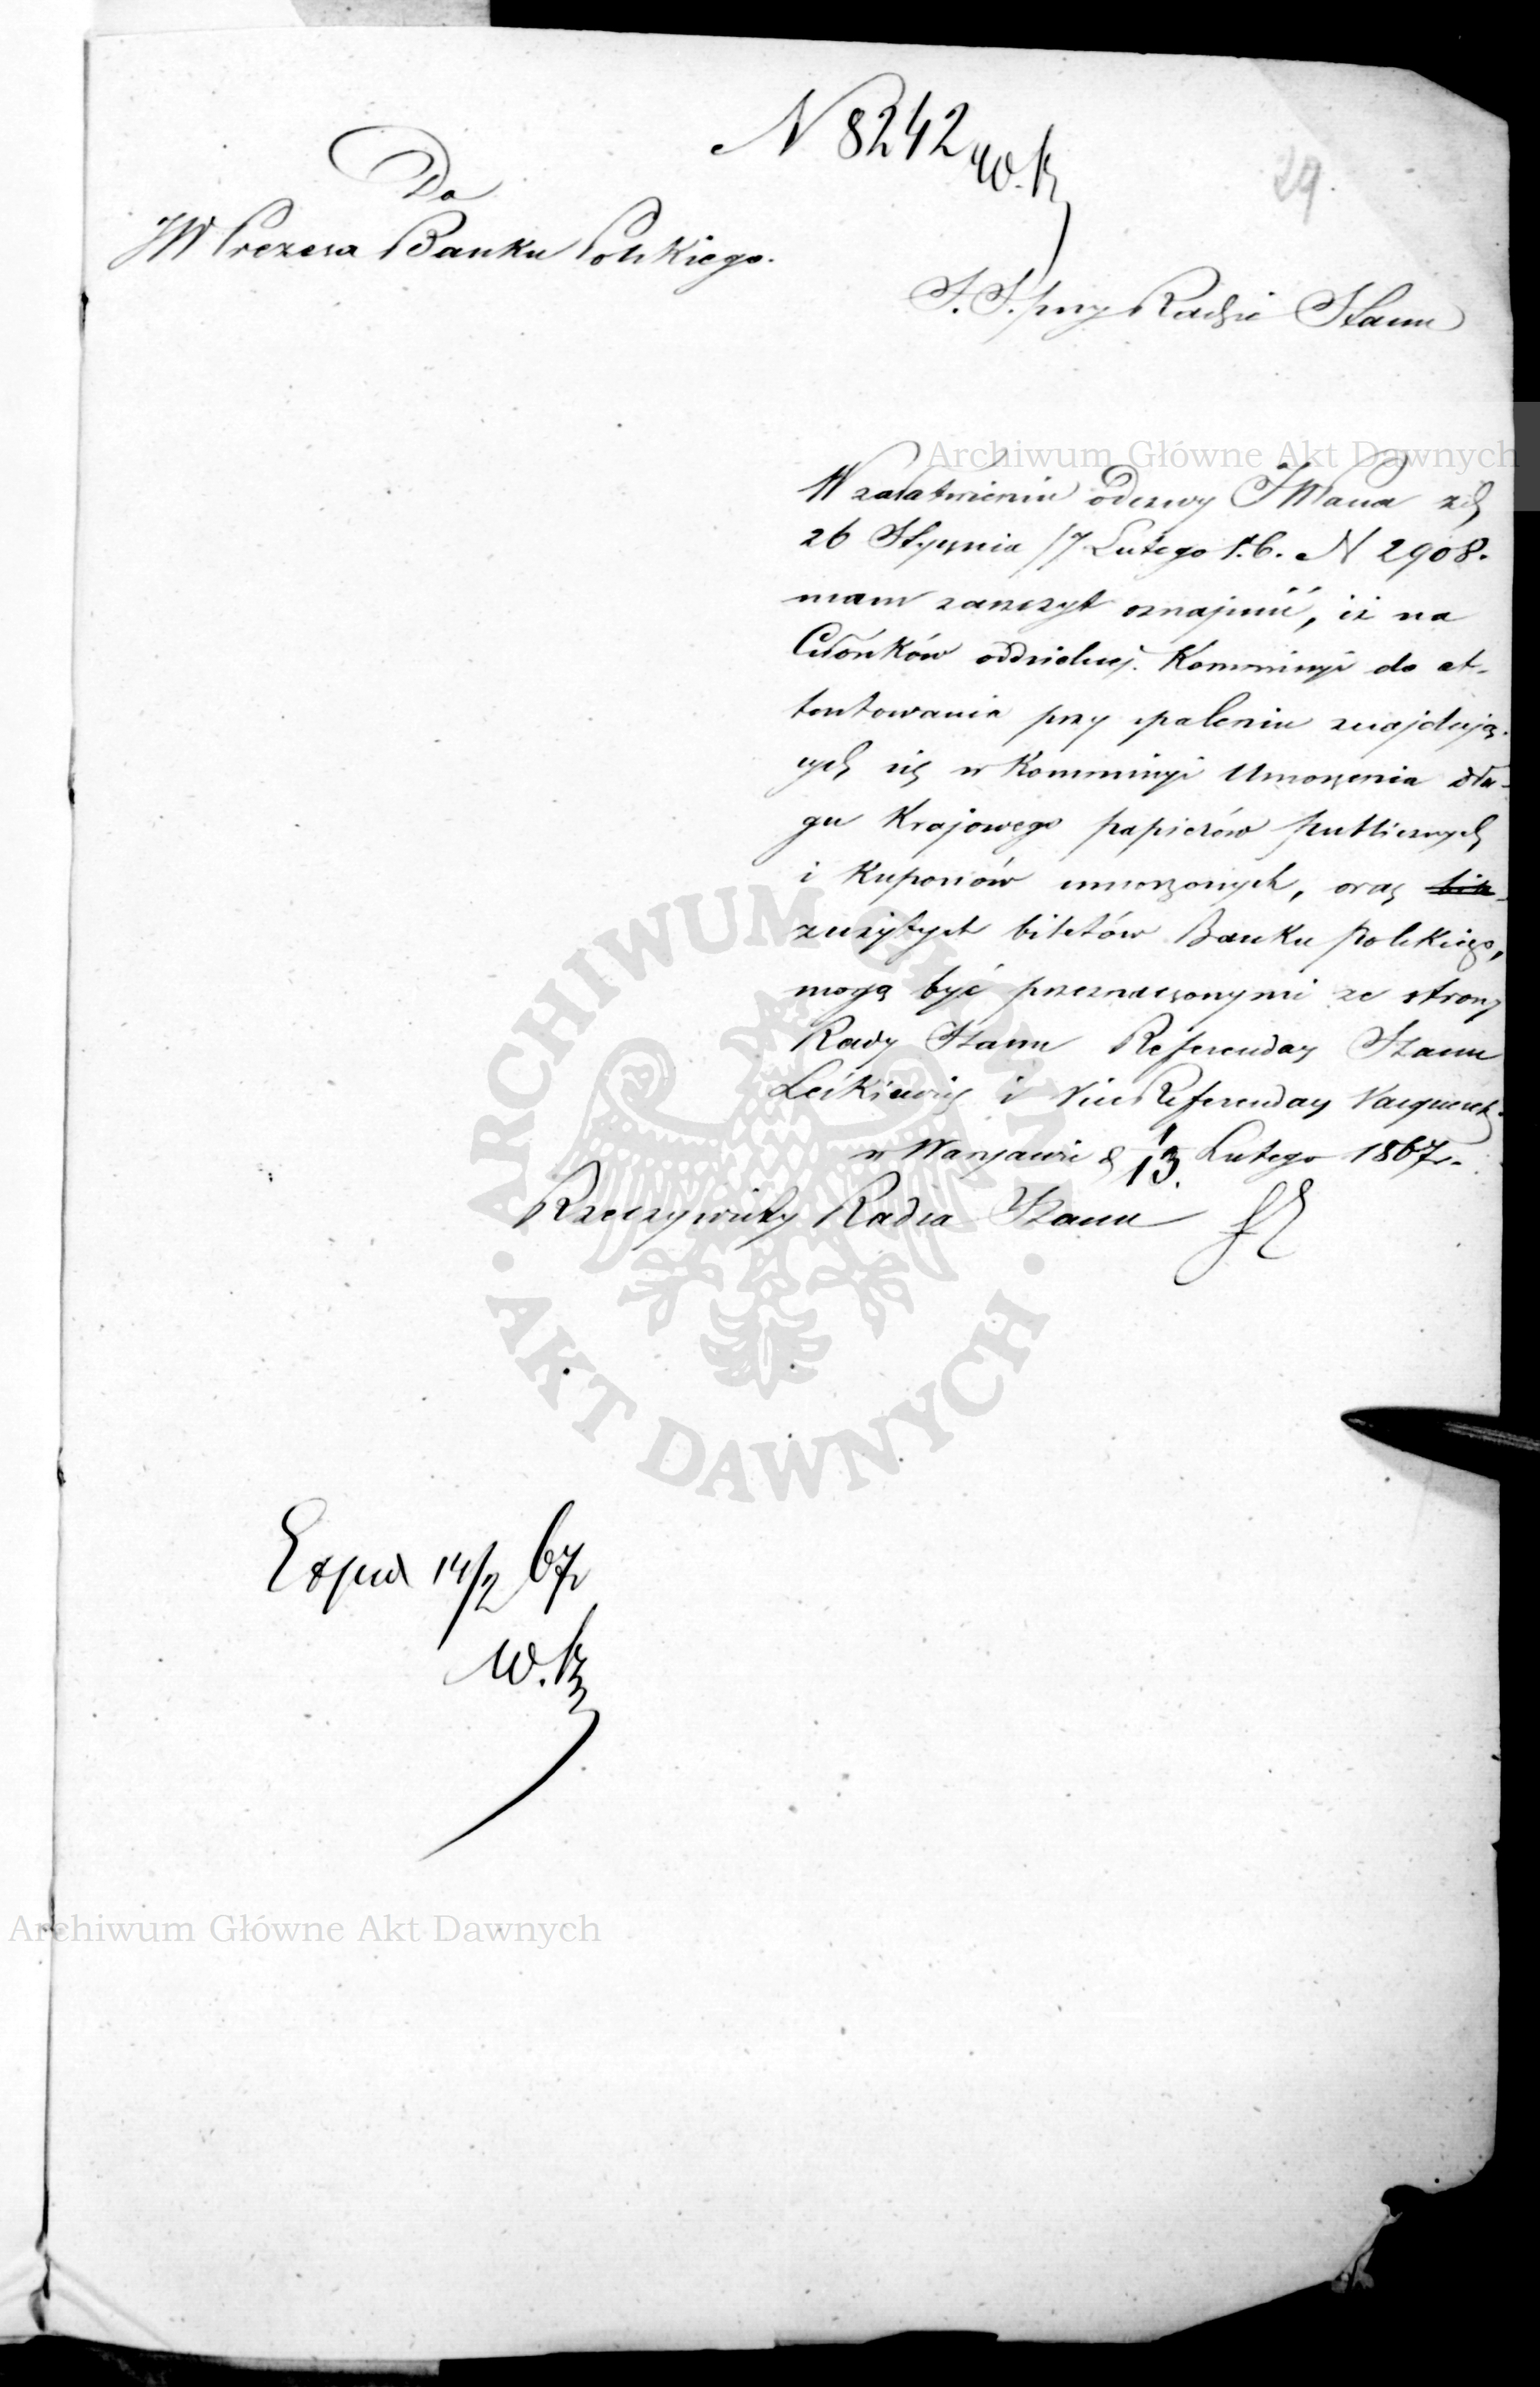 N 8242 W.K.
29.
Do
JW Prezesa Banku Polskiego.
S. S. przy Radzie Stanu
Archiwum Główne Akt Dawnych
W załatwieniu odezwy JWPana z d.
26 Stycznia /7 Lutego r. b. N 2908.
mam zaszczyt oznajmić, iż na
Członków oddzielnej Kommissyi do at-
tentowania przy spaleniu znajdują-
cych się w Kommissyi Umorzenia dłu-
gu Krajowego papierów publicznych
i Kuponów umorzonych, oraz
zużytych biletów Banku Polskiego,
mogą być przeznaczonymi ze strony
Rady Stanu Referendarz Stanu
i Vice Referendarz
w Warszawie d. 1/13. Lutego 1867 r.
Rzeczywisty Radca Stanu
ARCHIWUM GŁÓWNE
AKT DAWNYCH
14/2 67
W. K.
Archiwum Główne Akt Dawnych